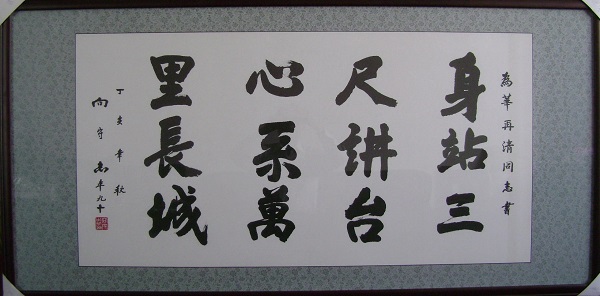 為華再清同志書
身站三
尺讲台
心系萬
里長城
丁亥年秋
向守志年九十